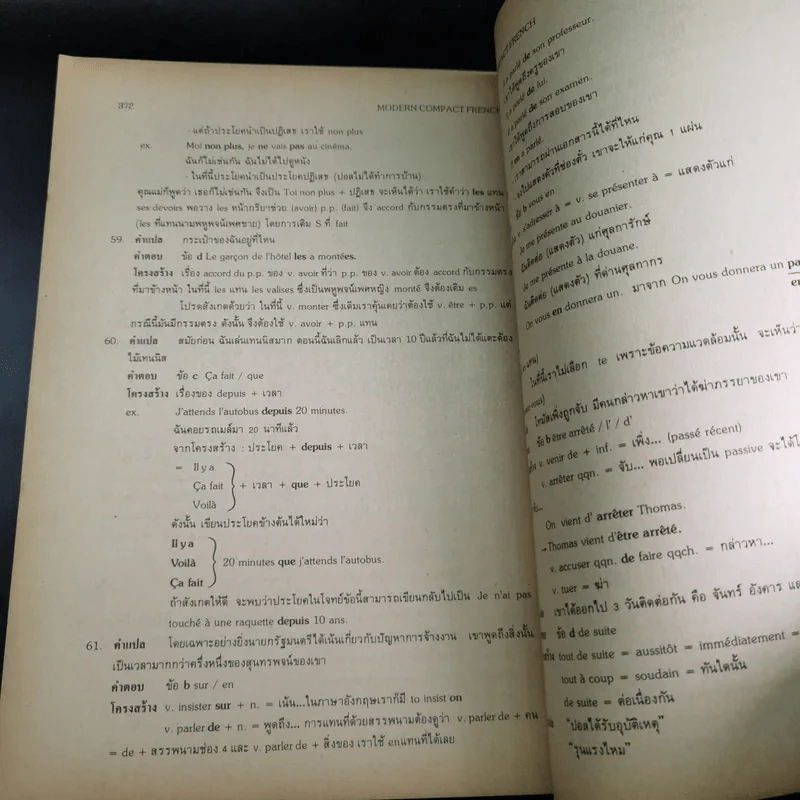 372
MODERN COMPACT FRENCH
- แต่ถ้าประโยคนำเป็นปฏิเสธ เราใช้ non plus
ex. Moi non plus, je ne vais pas au cinéma.
ฉันก็ไม่เช่นกัน ฉันไม่ได้ไปดูหนัง
- ในที่นี้ประโยคนำเป็นประโยคปฏิเสธ (ปอลไม่ได้ทำการบ้าน)
คุณแม่ก็พูดว่า เธอก็ไม่เช่นกัน จึงเป็น Toi non plus + ปฏิเสธ จะเห็นได้ว่า เราใช้คำว่า les แทน
ses devoirs พอวาง les หน้ากริยาช่วย (avoir) p.p. (fait) จึง accord กับกรรมตรงที่มาข้างหน้า
(les ที่แทนนามพหูพจน์เพศชาย) โดยการเติม S ที่ fait
59. คำแปล กระเป๋าของฉันอยู่ที่ไหน
คำตอบ ข้อ d Le garçon de l'hôtel les a montées.
โครงสร้าง เรื่อง accord du p.p. ของ v. avoir ที่ว่า p.p. ของ v. avoir ต้อง accord กับกรรมตรง
ที่มาข้างหน้า ในที่นี้ les แทน les valises ซึ่งเป็นพหูพจน์เพศหญิง monté จึงต้องเติม es
โปรดสังเกตด้วยว่า ในที่นี้ v. monter ซึ่งเดิมเราคุ้นเคยว่าต้องใช้ v. être + p.p. แต่
กรณีนี้มันมีกรรมตรง ดังนั้น จึงต้องใช้ v. avoir + p.p. แทน
60. คำแปล สมัยก่อน ฉันเล่นเทนนิสมาก ตอนนี้ฉันเลิกแล้ว เป็นเวลา 10 ปีแล้วที่ฉันไม่ได้แตะต้อง
ไม้เทนนิส
คำตอบ ข้อ c Ça fait / que
โครงสร้าง เรื่องของ depuis + เวลา
ex. J'attends l'autobus depuis 20 minutes.
ฉันคอยรถเมล์มา 20 นาทีแล้ว
จากโครงสร้าง : ประโยค + depuis + เวลา
= Il y a
Ça fait + เวลา + que + ประโยค
Voilà
ดังนั้น เขียนประโยคข้างต้นได้ใหม่ว่า
Il y a
Voilà 20 minutes que j'attends l'autobus.
Ça fait
ถ้าสังเกตให้ดี จะพบว่าประโยคในโจทย์ข้อนี้สามารถเขียนกลับไปเป็น Je n'ai pas
touché à une raquette depuis 10 ans.
61. คำแปล โดยเฉพาะอย่างยิ่งนายกรัฐมนตรีได้เน้นเกี่ยวกับปัญหาการจ้างงาน เขาพูดถึงสิ่งนั้น
เป็นเวลามากกว่าครึ่งหนึ่งของสุนทรพจน์ของเขา
คำตอบ ข้อ b sur / en
โครงสร้าง v. insister sur + n. = เน้น...ในภาษาอังกฤษเราก็มี to insist on
v. parler de + n. = พูดถึง... การแทนที่ด้วยสรรพนามต้องดูว่า v. parler de + คน
= de + สรรพนามช่อง 4 และ v. parler de + สิ่งของ เราใช้ en แทนที่ได้เลย
FRENCH
a parlé de son professeur.
เขาได้พูดถึงครูของเขา
a parlé de lui.
a parlé de son examen.
เขาได้พูดถึงการสอบของเขา
en a parlé.
สามารถผ่านเอกสารนี้ได้ที่ไหน
ไปแสดงตัวที่ช่องตั๋ว เขาจะให้แก่คุณ 1 แผ่น
ข้อ b vous en
v. s'adresser à = v. se présenter à = แสดงตัวแก่
Je me présente au douanier.
ฉันติดต่อ (แสดงตัว) แก่ศุลการักษ์
Je me présente à la douane.
ฉันติดต่อ (แสดงตัว) ที่ด่านศุลกากร
On vous en donnera un. มาจาก On vous donnera un
ในที่นี้เราไม่เลือก te เพราะข้อความแวดล้อมนั้น จะเห็นว่า
โทมัสเพิ่งถูกจับ มีคนกล่าวหาเขาว่าได้ฆ่าภรรยาของเขา
ข้อ b être arrêté / l' / d'
v. venir de + inf. = เพิ่ง... (passé récent)
v. arrêter qqn. = จับ... พอเปลี่ยนเป็น passive จะได้
On vient d' arrêter Thomas.
→Thomas vient d'être arrêté.
v. accuser qqn. de faire qqch. = กล่าวหา...
v. tuer = ฆ่า
เขาได้ออกไป 3 วันติดต่อกัน คือ จันทร์ อังคาร
ข้อ d de suite
tout de suite = aussitôt = immédiatement =
tout à coup = soudain = ทันใดนั้น
de suite = ต่อเนื่องกัน
"ปอลได้รับอุบัติเหตุ"
"รุนแรงไหม"